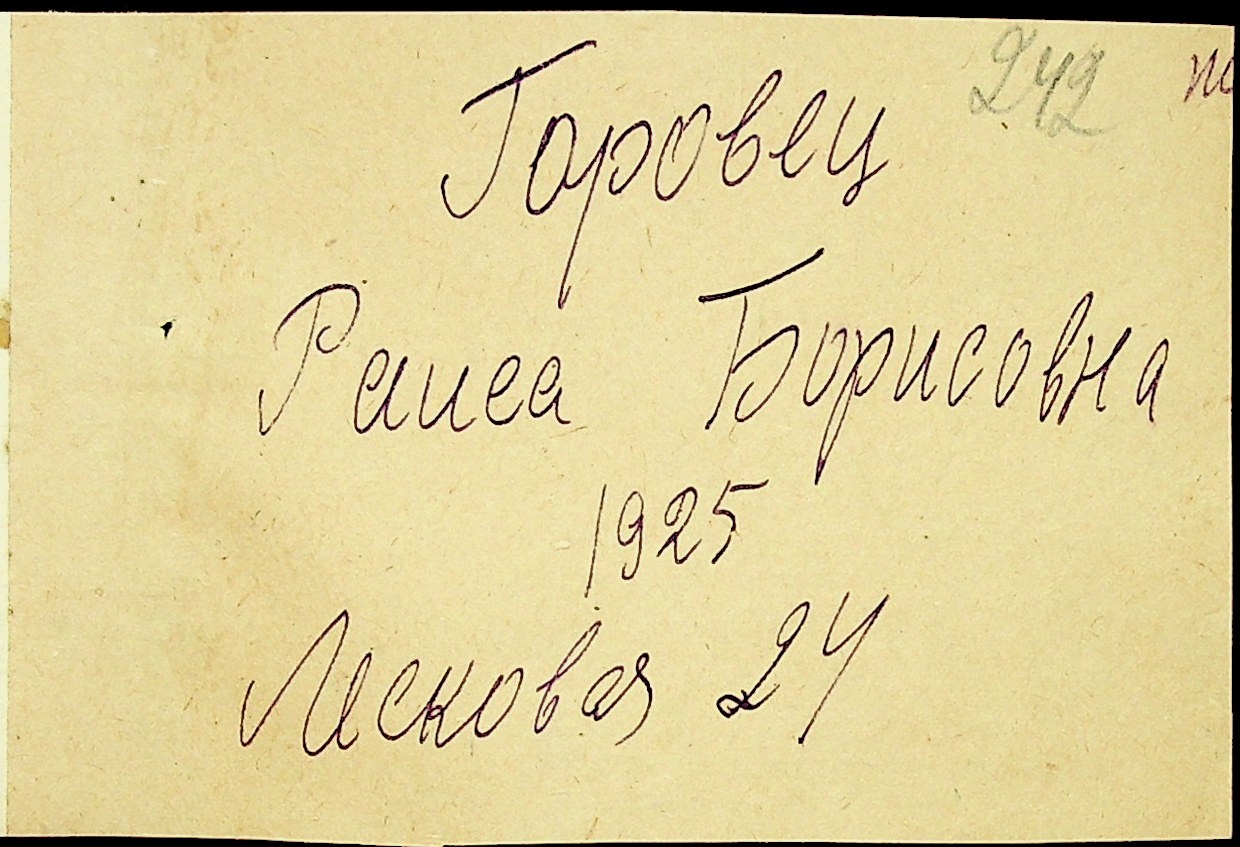 242
Горовец
Раиса Борисовна
1925
Лесковая 24